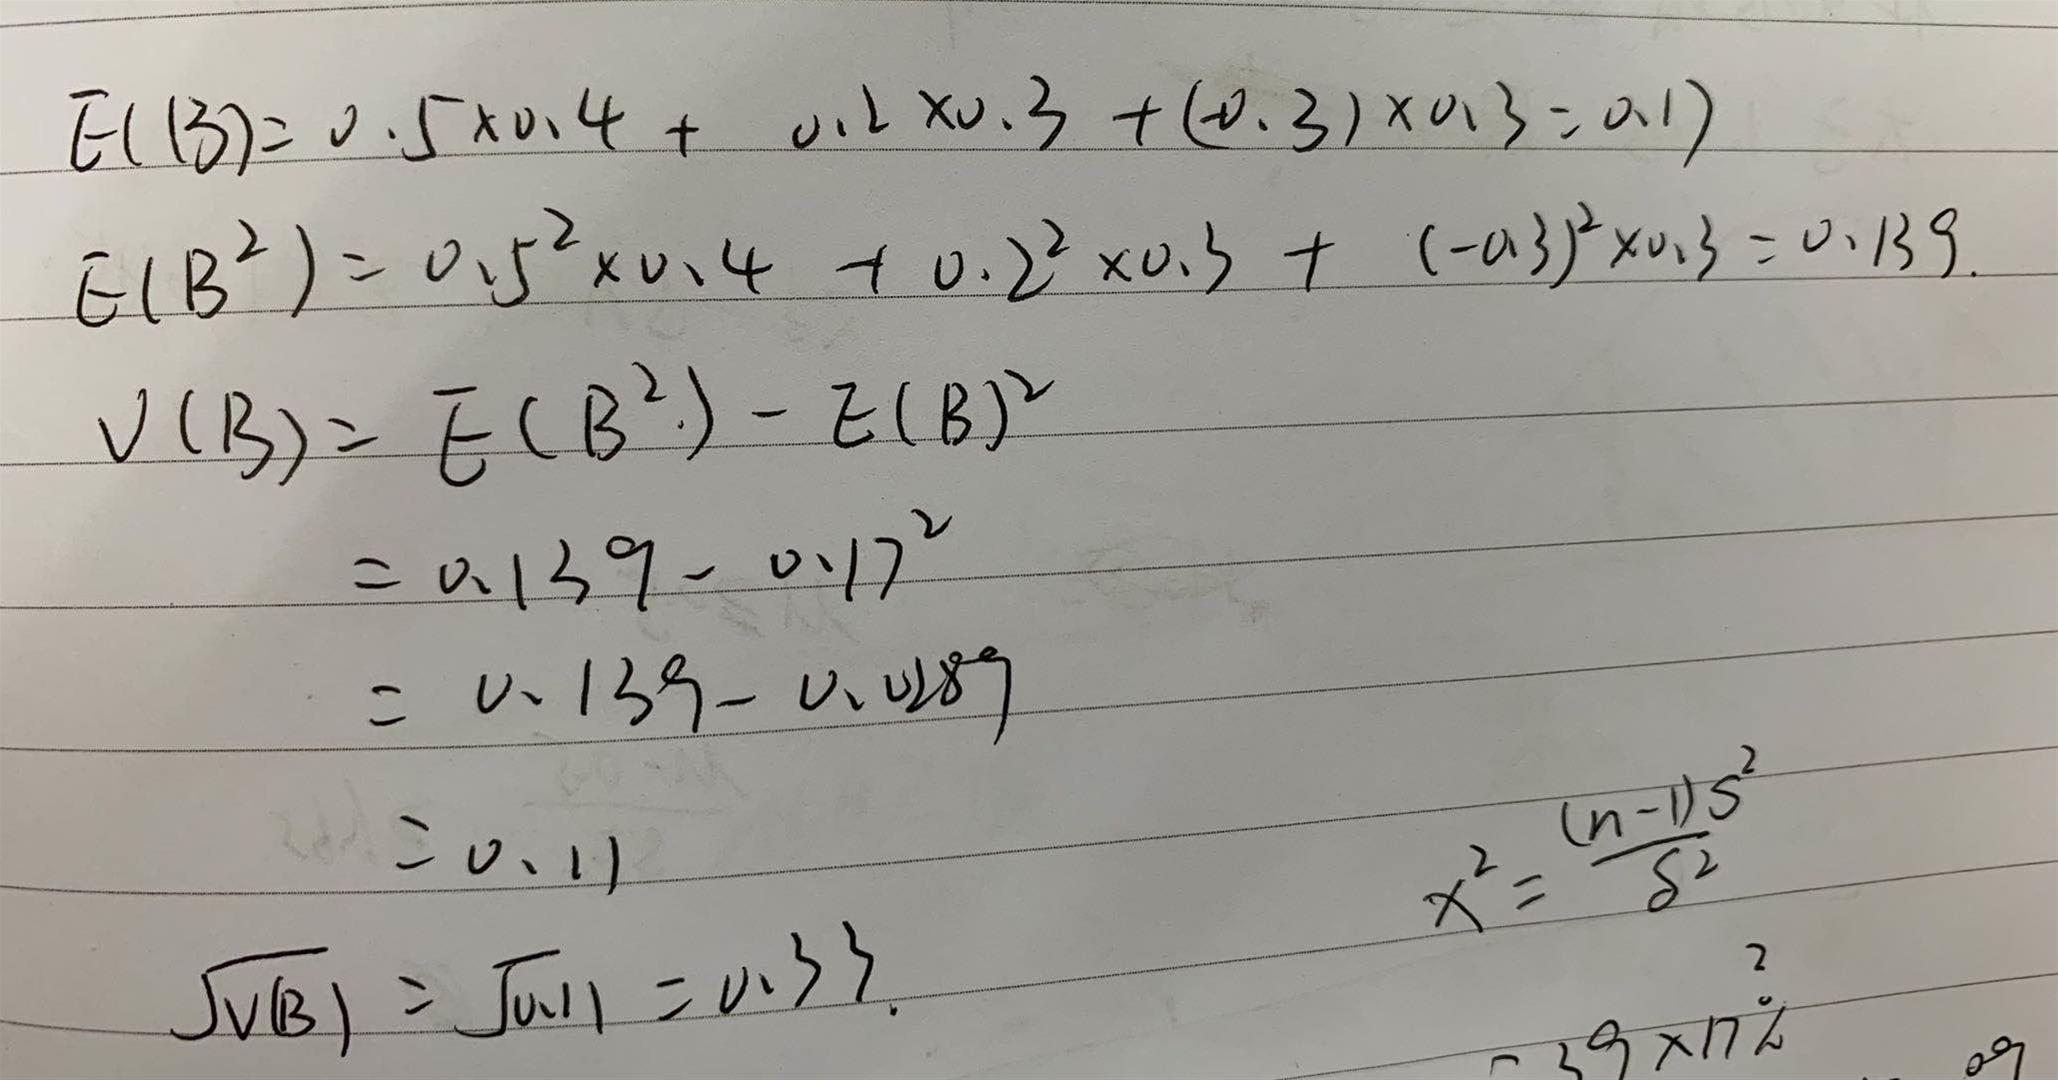 E(B)= 0.5×0.4 + 0.2×0.3 +(-0.3)×0.3=0.17
E(B²)= 0.5²×0.4 + 0.2²×0.3 + (-0.3)²×0.3=0.139.
V(B)= E(B²)-E(B)²
=0.139-0.17²
= 0.139-0.0289
=0.11
√V(B) = √0.11 =0.33.
x²= (n-1)S² / δ²
39×17%²
09